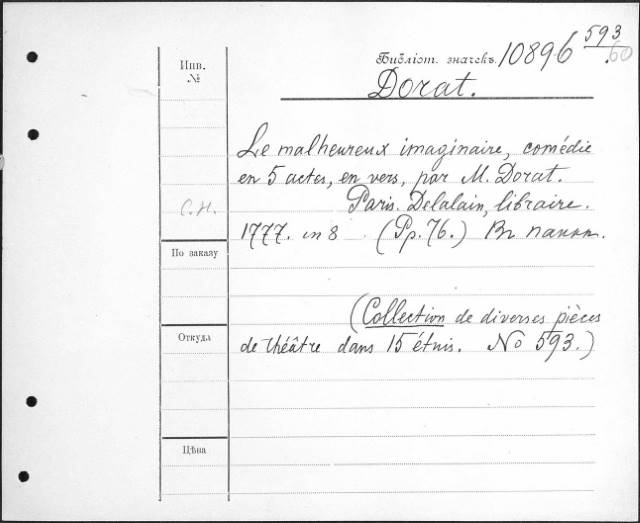 Инв.
№
Библіот. значекъ 10896 593
.60
Dorat.
Le malheureux imaginaire, comédie
en 5 actes, en vers, par M. Dorat.
С.Н.
Paris. Delalain, libraire.
1777. in 8 (Pp. 76.) Въ папкѣ.
По заказу
(Collection de diverses pièces
Откуда
de théâtre dans 15 étuis. No 593.)
Цѣна